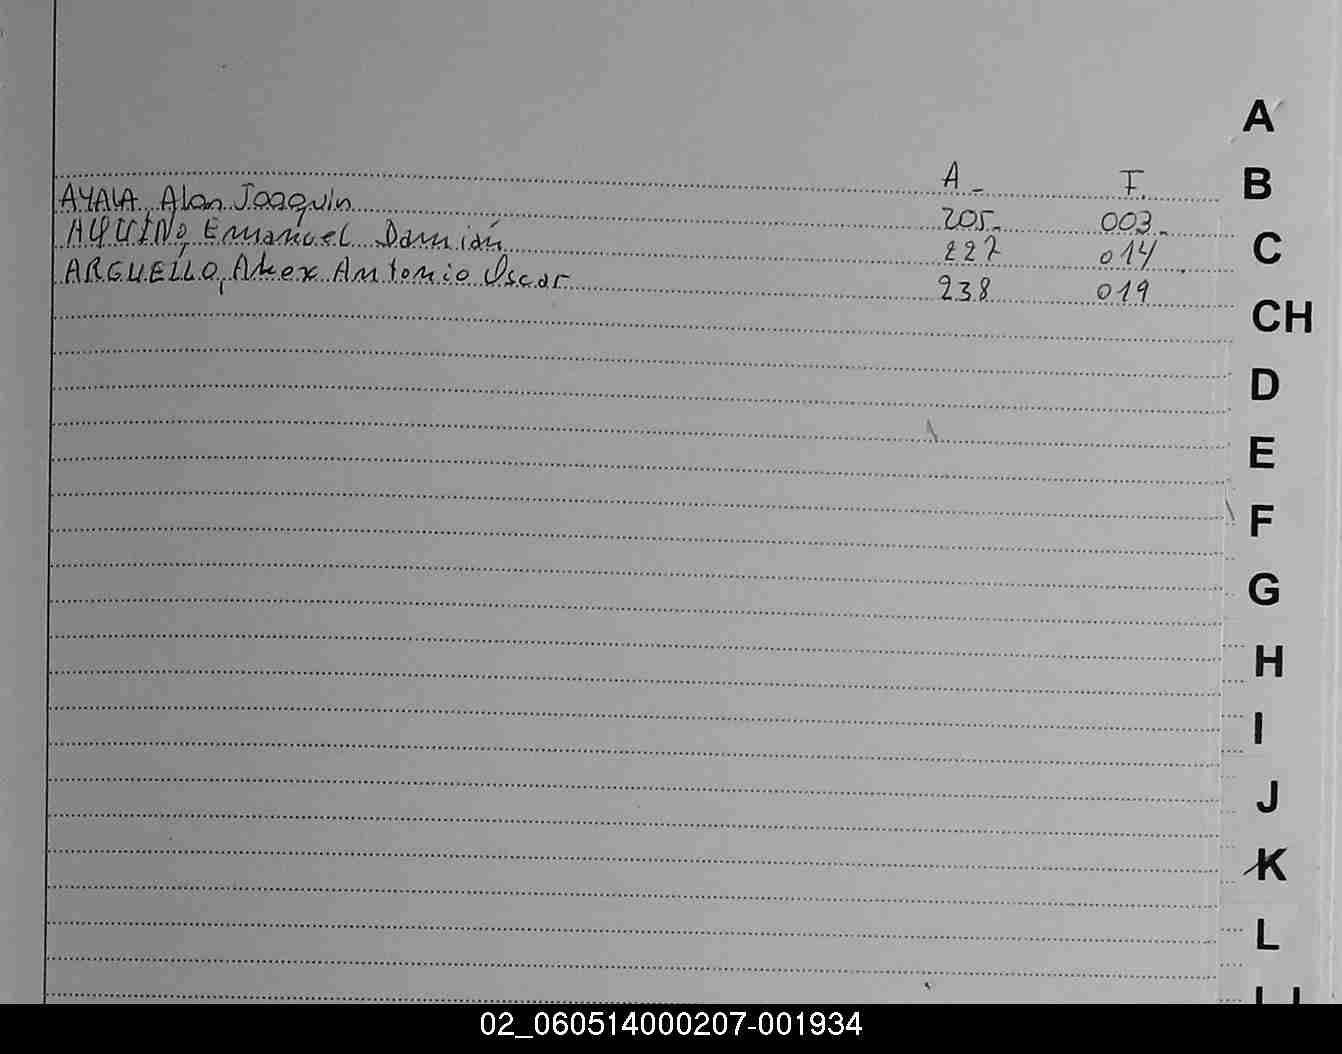 A
A - F.
B
AYALA, Alan Joaquín 205. 003.
AQUINO, Emanuel Damián 227 014
C
ARGUELLO, Alex Antonio Oscar 238 019
CH
D
E
F
G
H
I
J
K
L
02_060514000207-001934